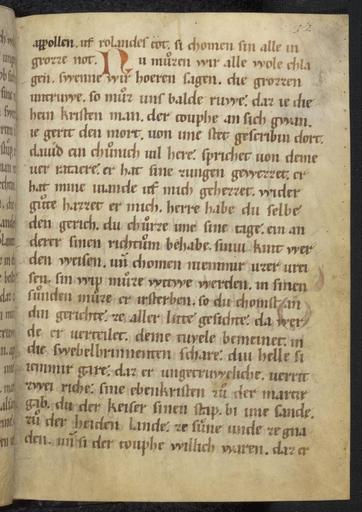 52
appollen. uf rolandes tot. si chomen sin alle in
grozze not. Nu muzen wir alle wole chla
gen. swenne wir hoeren sagen. die grozzen
untruwe. so muz uns balde ruwe. daz ie die
hein kristen man. der touphe an sich gwan.
ie geriet den mort. von ime stet gescribin dort.
david ein chunich vil here. sprichet von deme
ver ratære. er hat sine zungen gewezzet. er
hat mine viande uf mich gehezzet. wider
gute hazzet er mich. herre habe du selbe
den gerich. du churze ime sine tage. ein an
derer sinen richtum behabe. siniu kint wer
den weisen. un chomen niemmir uzer vrei
sen. sin wip muze witwe werden. in sinen
sunden muze er irsterben. so du chomst an
din gerichte. ze aller liute gesichte. da wer
de er verteilet. deme tuvele bemeinet. in
die swebelbrinnenten schare. diu helle si
iemmir gare. daz er ungetruweliche. verriet
zwei riche. sine ebenkristen zu der martir
gab. du der keiser sinen stap. bi ime sande.
zu der heiden lande. ze sune unde ze gna
den. un si der touphe willich waren. daz er